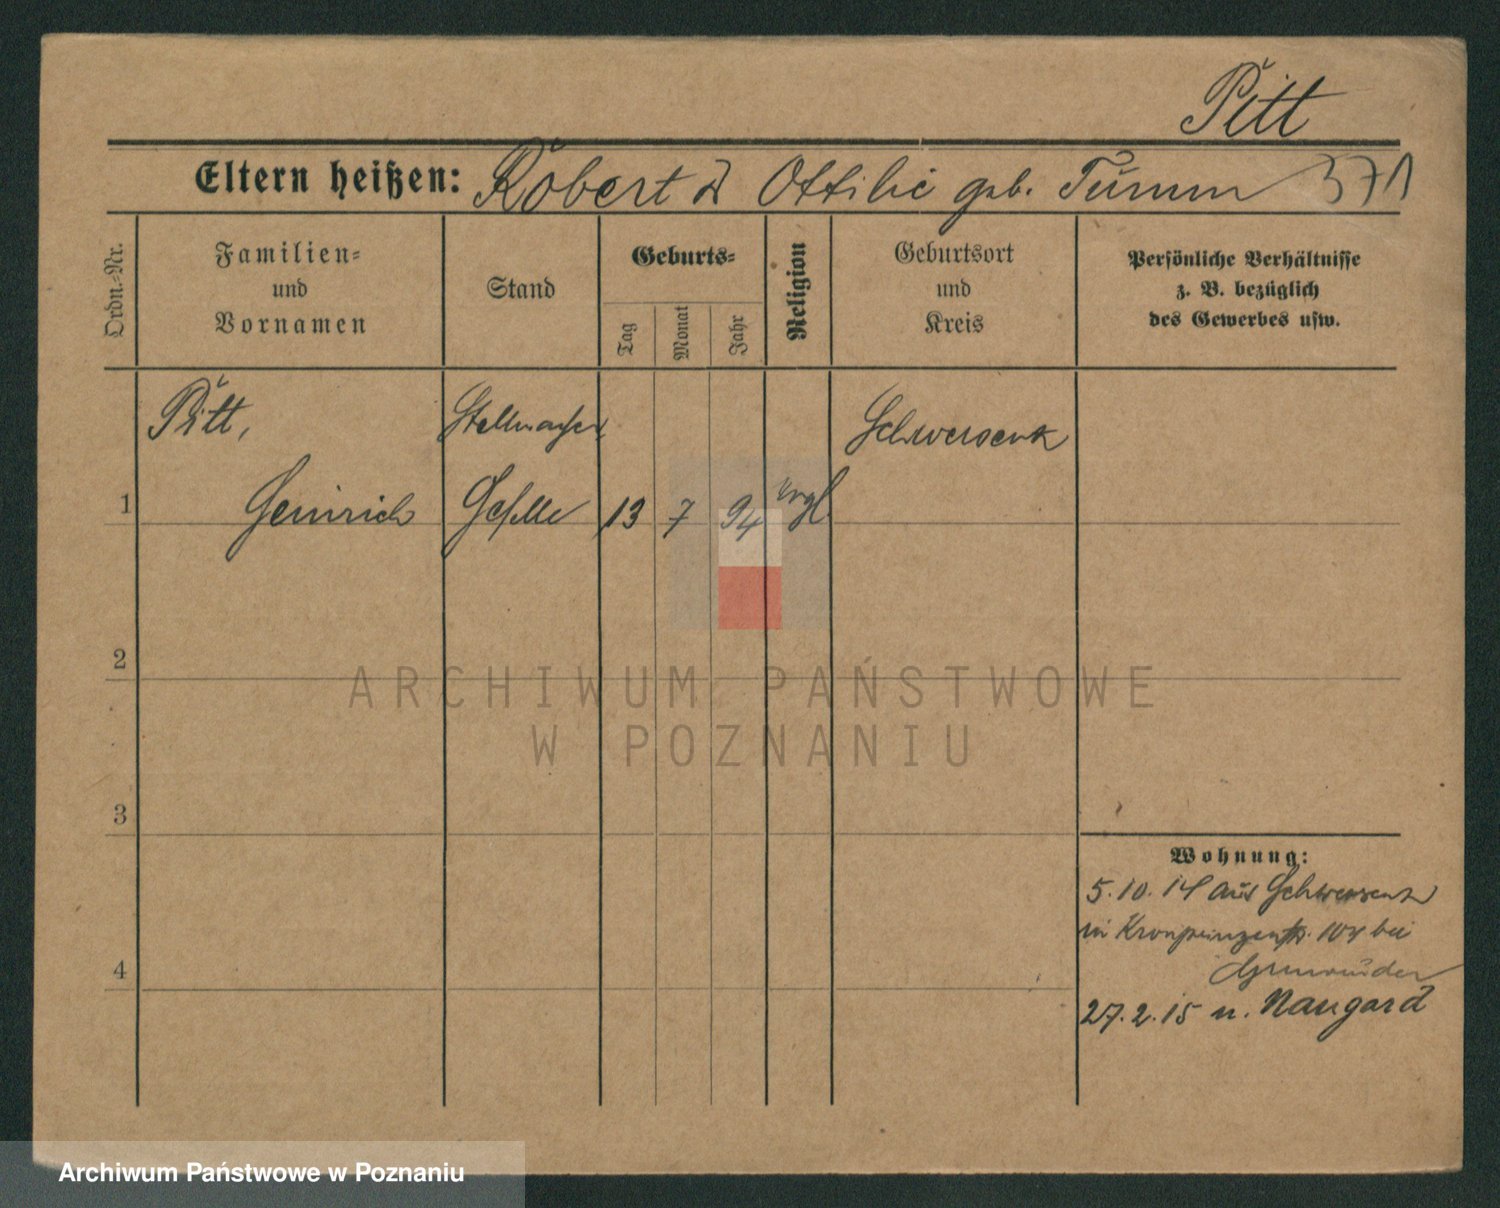 Pitt
Eltern heißen: Robert & Ottilie geb. Tumm 371
Ordn.-Nr.
Familien-
und
Vornamen
Stand
Geburts-
Tag
Monat
Jahr
Religion
Geburtsort
und
Kreis
Persönliche Verhältnisse
z. B. bezüglich
des Gewerbes usw.
Pitt, Stellmacher Schwersenz
1 Heinrich Geselle 13 7 94 evgl.
2
ARCHIWUM PAŃSTWOWE
W POZNANIU
3
Wohnung:
5.10.14 aus Schwersenz
in Kronprinzenstr. 104 bei
4
27.2.15 n. Naugard
Archiwum Państwowe w Poznaniu